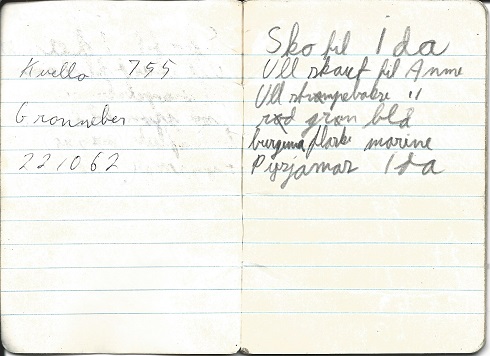 Kvello 755
Gronneber
221062
Sko til Ida
Ull skauf til Anne
Ull strømpebukse "
rød grøn blå
marine
Pysjamas Ida